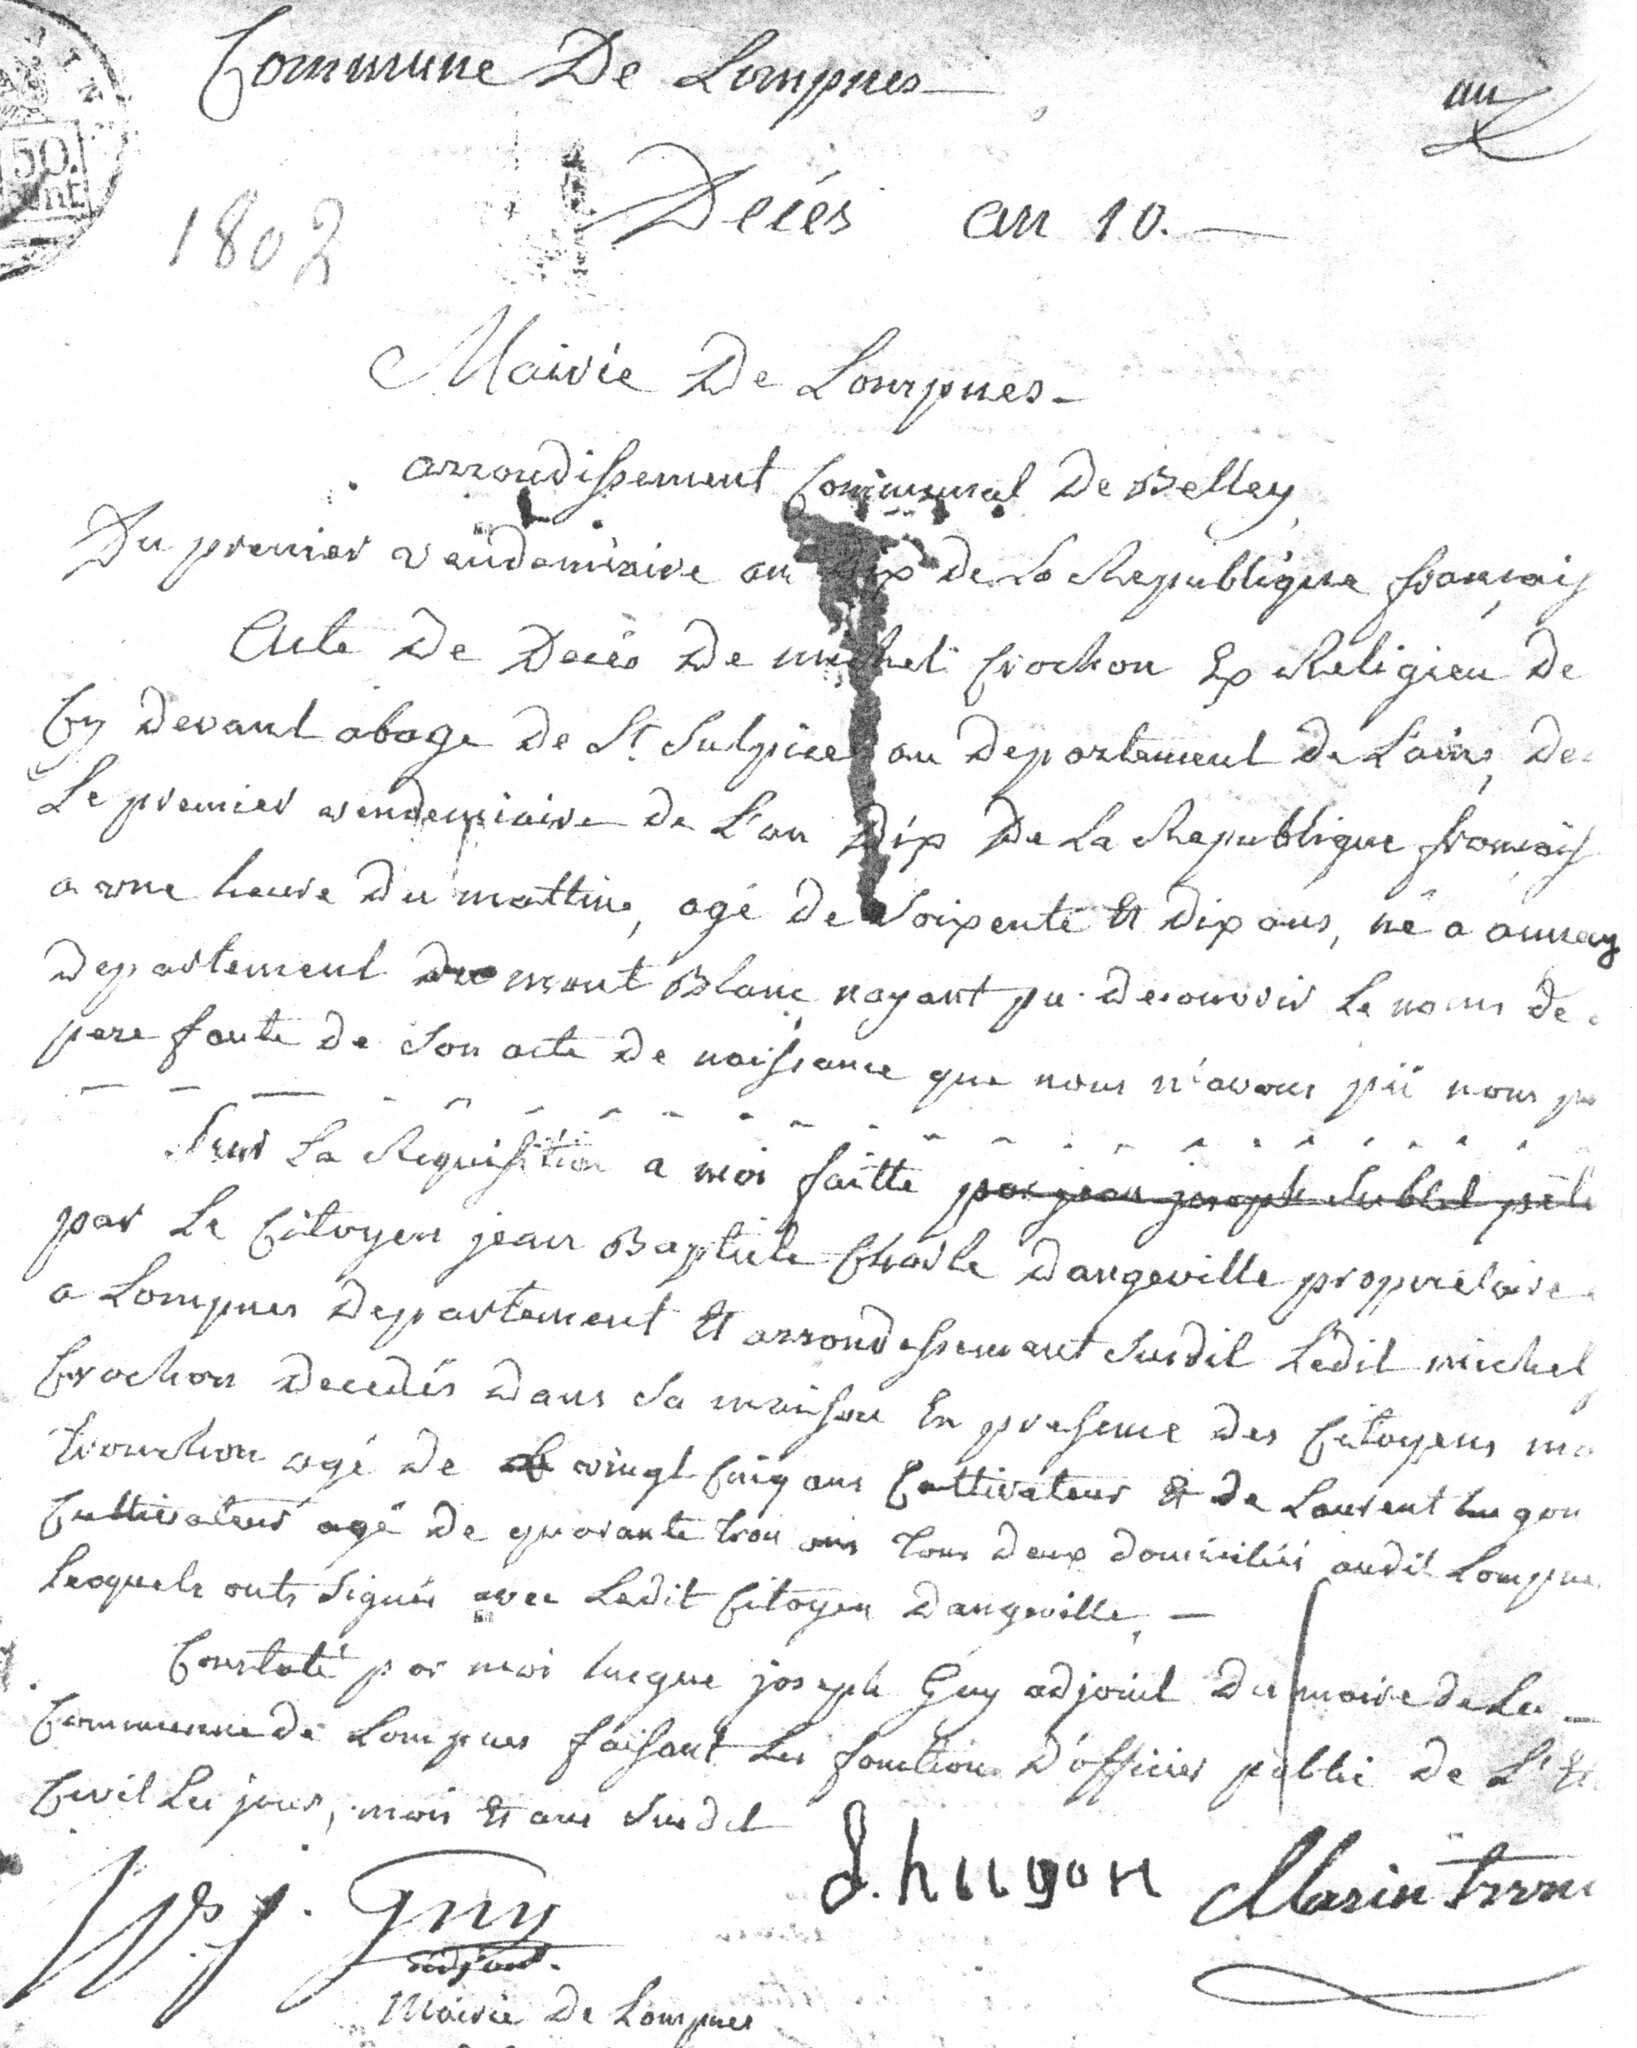 Commune De Lompnes
au
50.
Cent
1802
Décés an 10.
Mairie De Lompnes
arrondissement Communal De Belley
Du premier vendemiaire an dix de La Republique français
Acte De Decés De michel Crochon Ex Religieu De
Cy devant abage De St Sulpice au Departement De L'ain, De
Le premier vendemiaire de L'an dix De La Republique françois
a une heure Du mattine, agé de Soixente Et dix ans, né a annecy
Departement du mont Blanc nayant pu decouvrir Le noms de
pere faute de Son acte De naissance que nous n'avons pü nous
Sur La Requisition a moi faitte par jean joseph Sublet
par Le Citoyen jean Baptiste Charle Dangeville proprietaire
a Lompnes Departement Et arrondissement Susdit Ledit michel
Crochon Decedés Dans Sa maison En presence Des Citoyens ma
trouchon agé De vingt Cinq ans Cultivateur Et de Laurent hugon
Cultivateur agé De quarante troi ans tous deux domiciliés audit Lompne
Lesquels onts Signés avec Ledit Citoyen Dangeville
Constaté par moi joseph Guy adjoint Du maire de La
Commune de Lompnes faisant Les fonctions D'officier public de L'Et
Civil Les jour, mois Et ans Susdit
j. Guy
adjoint.
hugon
Marin trou
Mairie De Lompnes